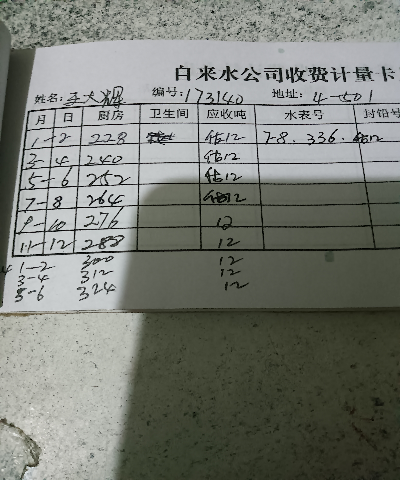 自来水公司收费计量卡
姓名: 王大辉 编号: 173140 地址: 4-501
月 日 厨房 卫生间 应收吨 水表号 封铅号
1-2 228 估12 7-8. 336.
3-4 240 估12
5-6 252 估12
7-8 264 估12
9-10 276 12
11-12 288 12
1-2 300 12
3-4 312 12
5-6 324 12